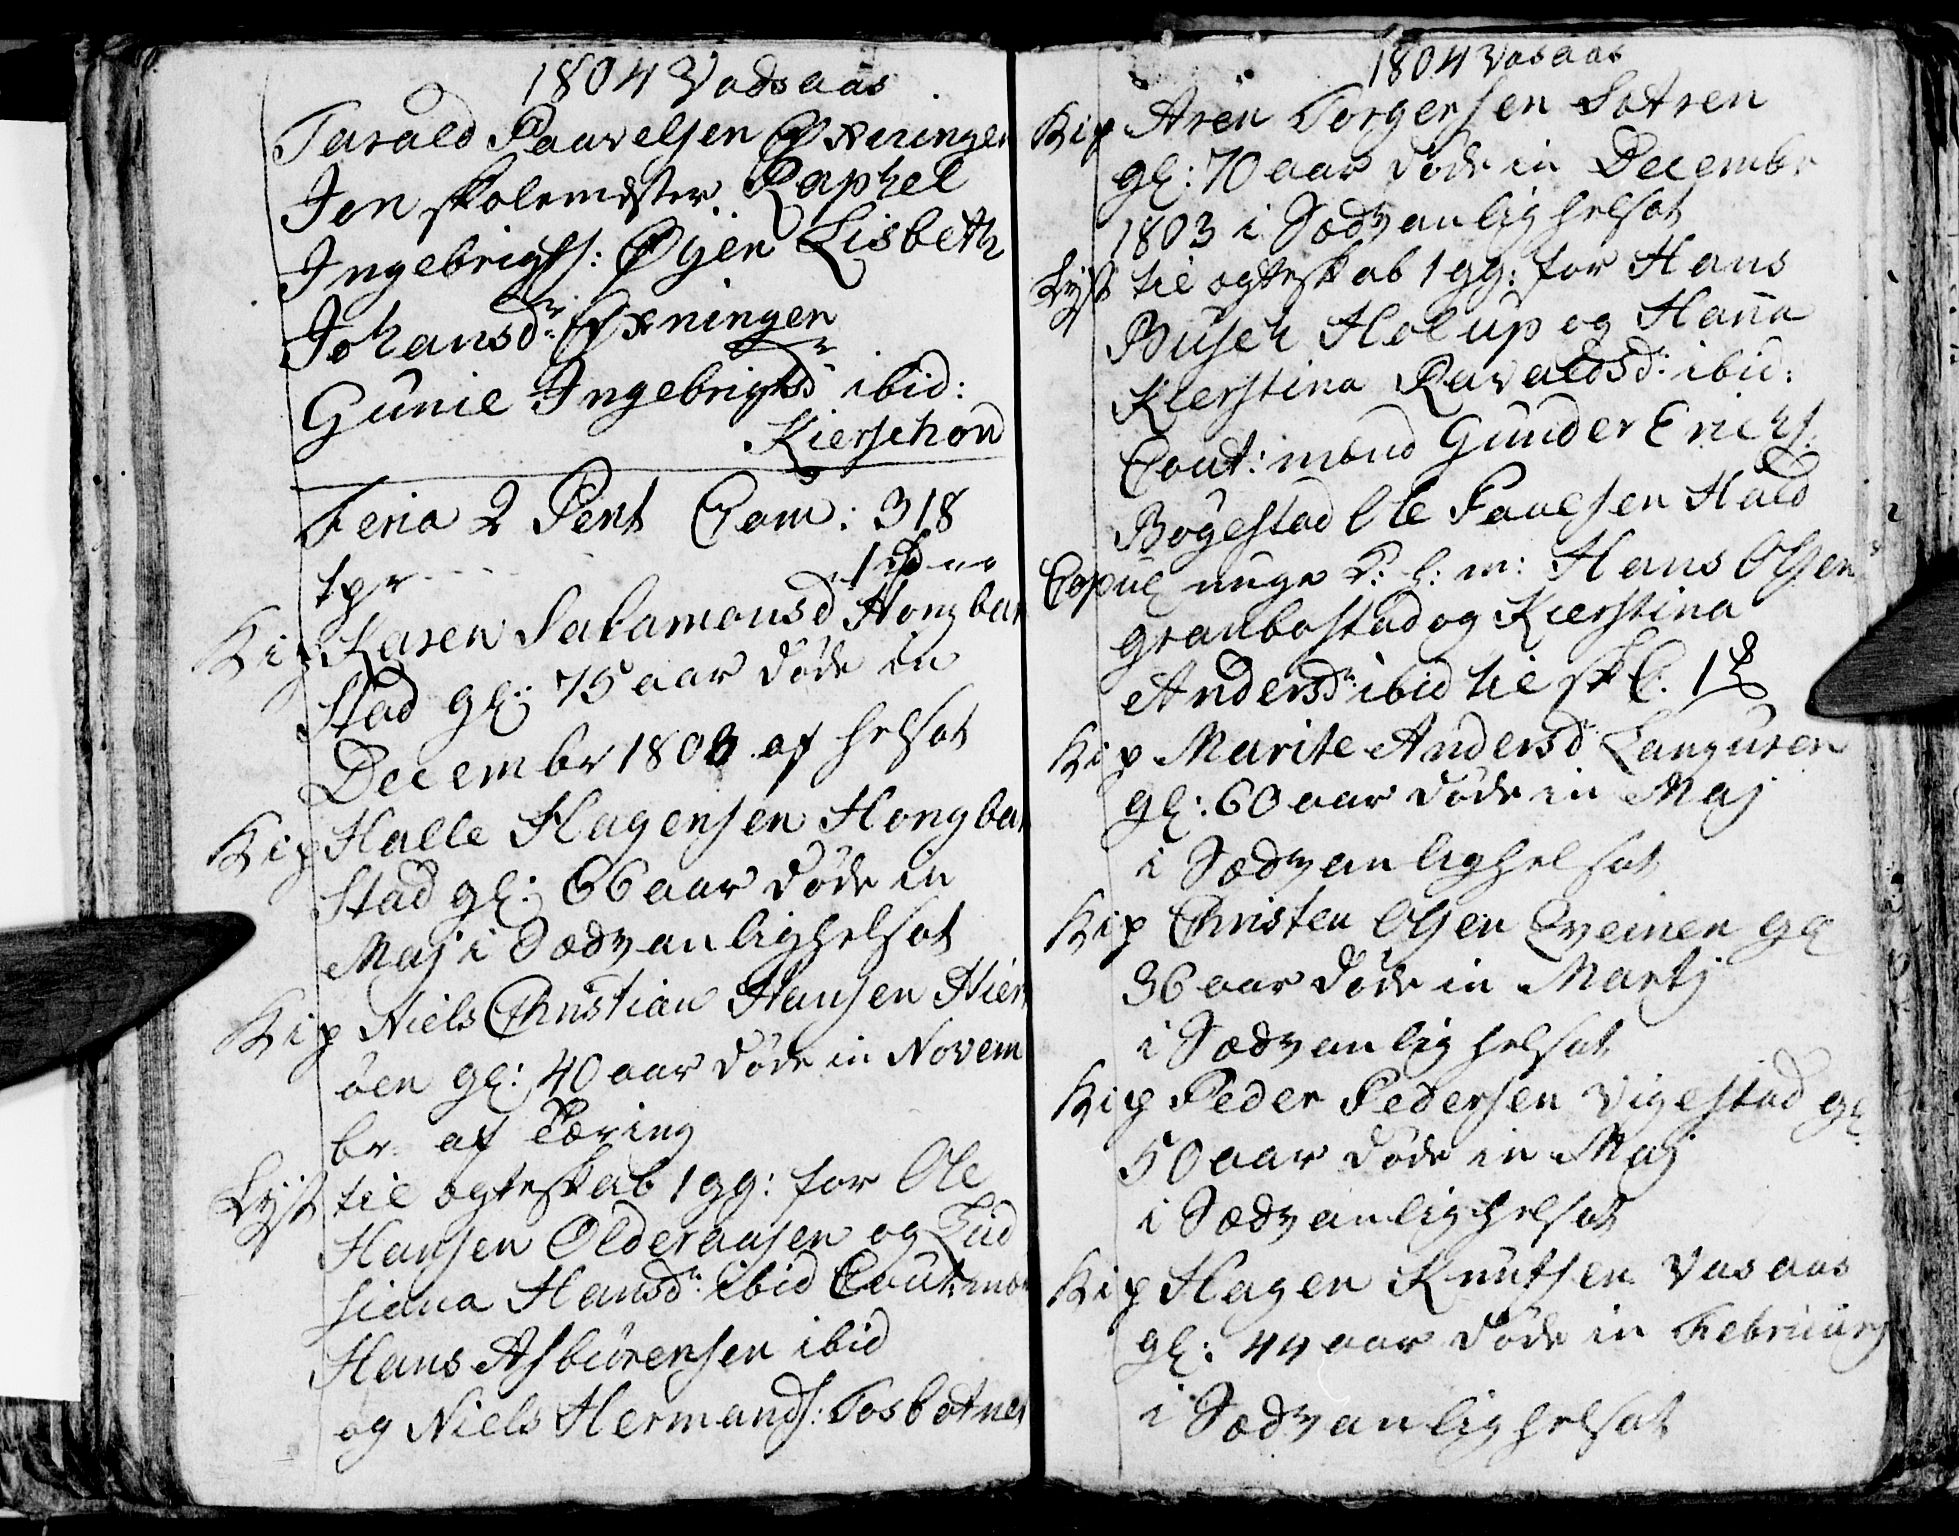 1804 Vadsaas
Tarald Paavelsen Øxningen
Jon skolemester. Raphel
Ingebrigts: Øyen Lisbeth
Johansdr: Øxningen
Gunil Ingebrigtsdr ibid:
Kierschon
Feria 2 Pent Com: 318
tpr
Kip Karen Salamonsd Hongbar
stad gl: 75 aar døde in
Decembr 1803 af helsot
Kip Halle Hagensen Hongbar
stad gl: 66 aar døde in
Maj i Sædvanlig helsot
Kip Niels Christian Hansen Hiert
øen gl: 40 aar døde in Novem
br. af Tæring
Lyst til ægteskab 1 gg: for Ole
Hansen Olderaasen og Lud
siana Hansdr: ibid Caut: mæn
Hans Asbiørensen ibid
og Niels Hermands: Tosbotnen
1804 Vasaas
Kip Aren Torgersen Sætren
gl: 70 aar døde in Decembr
1803 i Sædvanlig helsot
Lyst til ægteskab 1 gg: for Hans
Busch Holup og Hanna
Kierstina Ravaldsdr: ibid:
Caut: mænd Gunder Erichs.
Bøgestad Ole Paaelsen Hald
Copul unge K: h: m: Hans Olsen
Granbostad og Kierstina
Andersdr: ibid til sk
Kip Marite Andersd Languren
gl: 60 aar døde in Maj
i Sædvanlig helsot
Kip Christen Olsen Qveinen gl
36 aar døde in Martj
i Sædvanlig helsot
Kip Peder Pedersen Vigestad gl:
50 aar døde in Maj
i Sædvanlig helsot
Kip Hagen Knutsen Vasaas
gl: 44 aar døde in Februarj
i Sædvanlig helsot